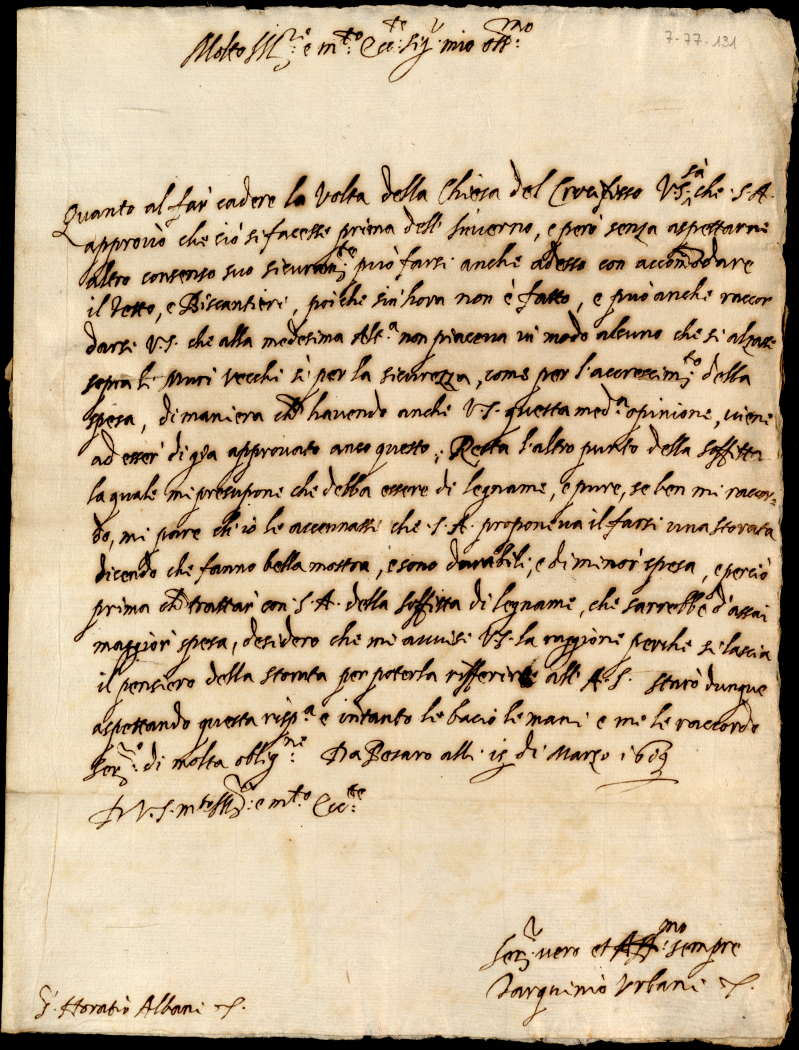 7-77-131
Molto Ill.re e m.to Ecc.te Sig.r mio oss.mo
Quanto al far cadere la Volta della Chiesa del Crocifisso V.S. sà che S.A.
approvò che ciò si facesse prima dell'Inverno, e però senza aspettarne
altro consenso suo sicuram.te può farsi anche adesso con accommodare
il Tetto, e Biscantieri, poiche sin'hora non è fatto, e può anche raccor
darsi V.S. che alla medesima Alt.a non piaceva in modo alcuno che si alzasse
sopra li Muri Vecchi sì per la sicurezza, come per l'accrescim.to della
spesa, di maniera che havendo anche V.S. questa med.a opinione, viene
ad esser di già approvato anco questo; Resta l'altro punto della soffitta
la quale mi presupone che debba essere di legname, e pure, se ben mi raccor-
do, mi pare ch'io le accennassi che S.A. proponeva il farsi una storata
dicendo che fanno bella mostra, e sono durabili, e di minor spesa, e perciò
prima che trattar con S.A. della soffitta di legname, che sarrebbe d'assai
maggior spesa, desidero che me avvisi V.S. la raggione perche si lascia
il pensiero della storata per poterla rifferire all'A.S. starò dunque
aspettando questa risp.a e intanto le bacio le mani e me le raccordo
Ser.re di molta oblig.ne Da Pesaro alli 15 di Marzo 1619
D V.S. m.to Ill.re e m.to Ecc.te
Ser.r vero et Aff.mo sempre
Tarquinio Urbani
S.r Horatio Albani